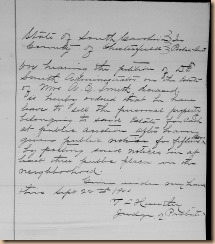 State of South Carolina
County of Chesterfield
Upon hearing the petition of
Smith Administrator on the Estate
of Mrs A. E. Smith deceased
It is hereby ordered that he have
leave to sell the personal property
belonging to said Estate for Cash
at public auction after having
given public notice for fifteen days
by posting said notices in at
least three public places in the
neighborhood.
Given under my hand
this Sept 20th
Judge of Probate